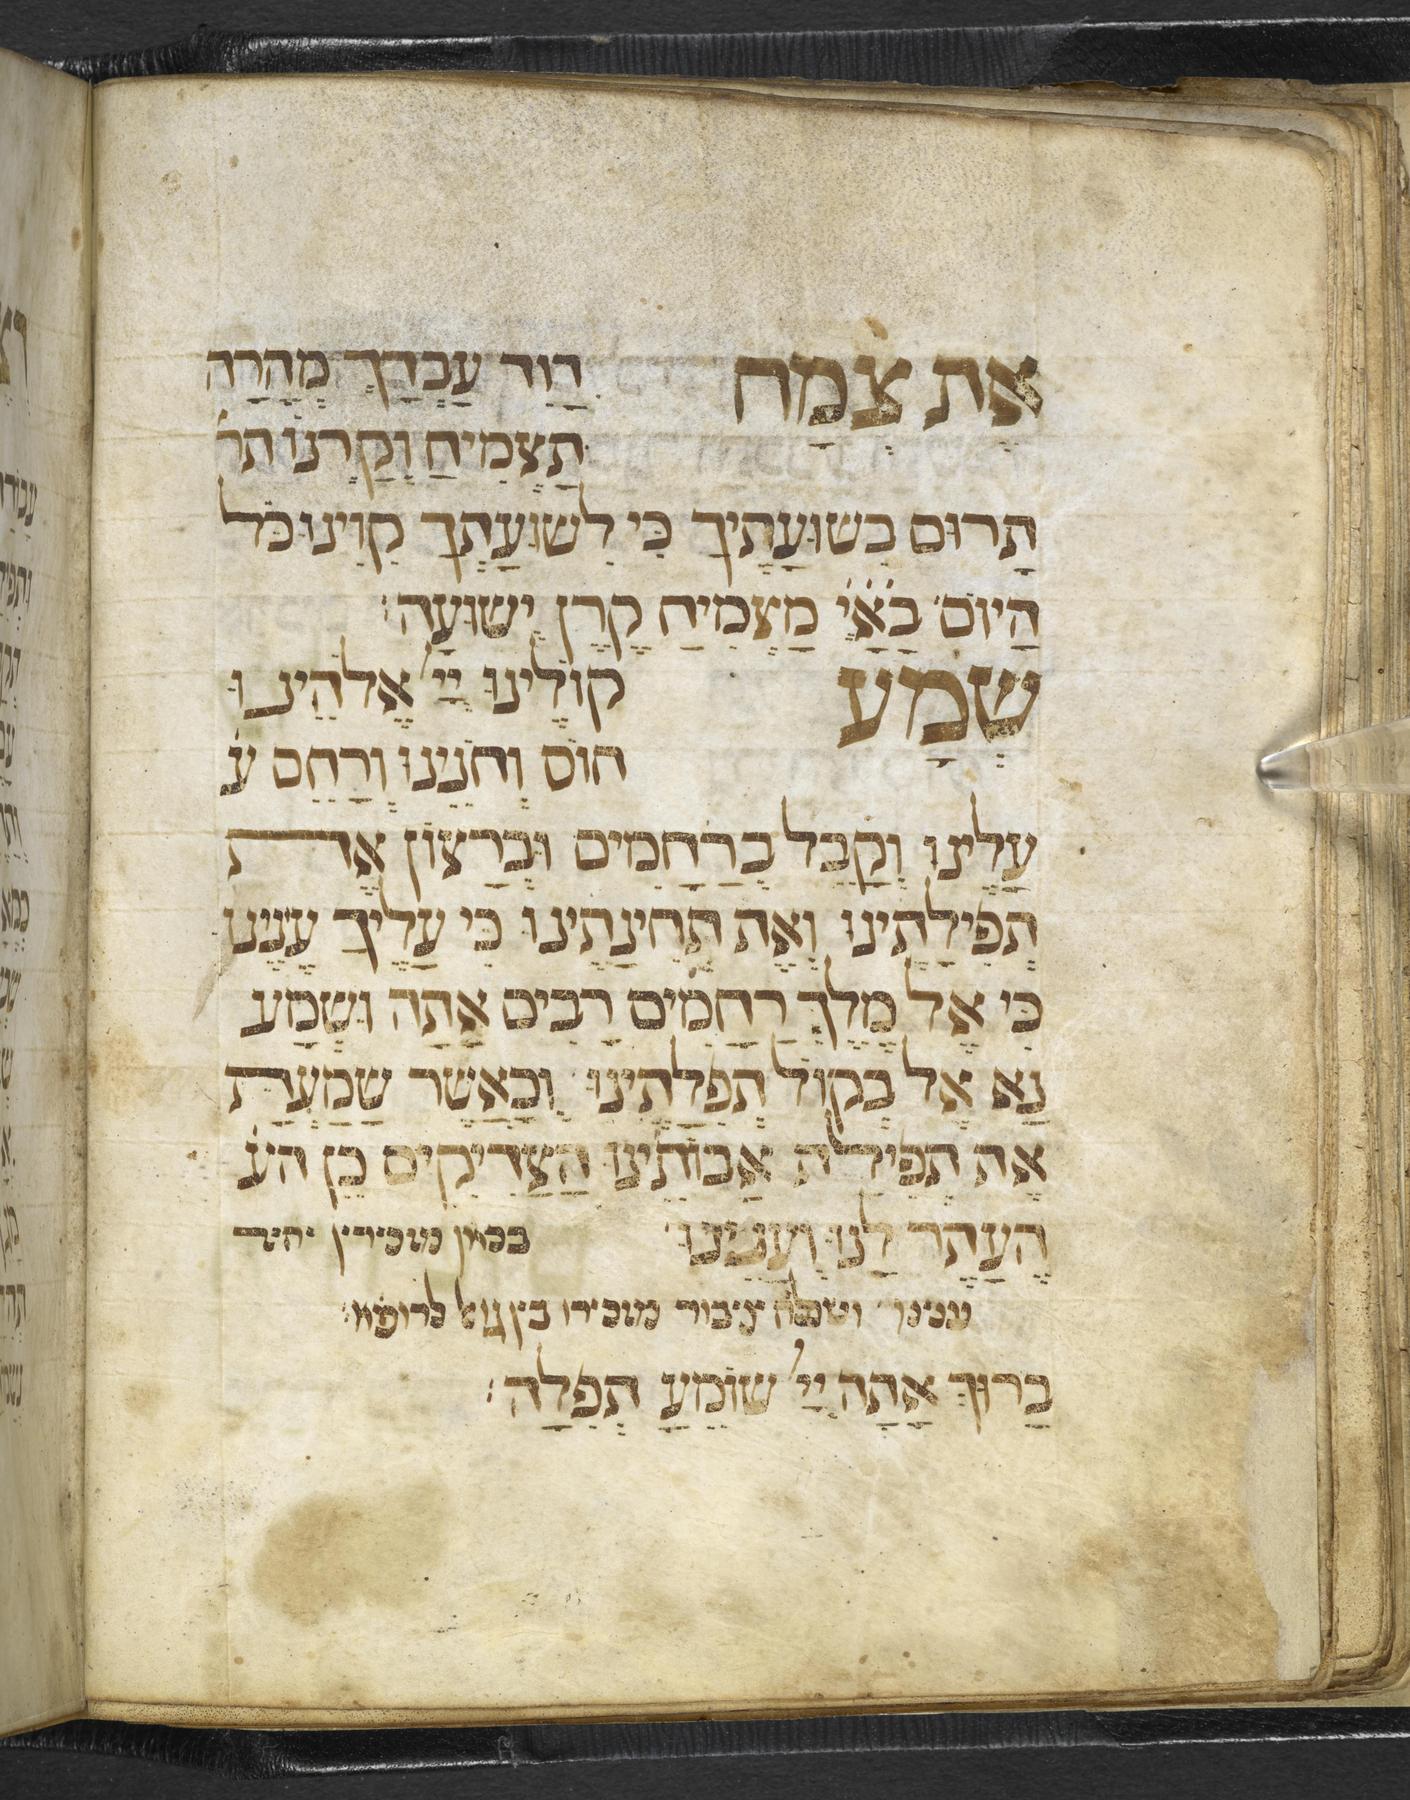 אֶת צֶמָח דָוִד עַבְדָךְ מְהֵרָה
תַצְמִיחַ וְקַרְנוֹ תר
תָרוּם בִשוּעָתֶיךָ כִּי לִשוּעָתְךָ קִוִינוּ כֹּל
הַיוֹם׳ בָּאֲיָ מַצְמִיחַ קֶרֶן יְשׁוּעָה׃
שְׁמָע קוֹלֵינוּ יְיָ אֱלֹהֵינוּ
חוֹס וְחֹנֵינוּ וְרַחֵם ע
עָלֵינוּ וְקַבֵל בְרַחָמִים וּבְרָצוֹן אֶת
תְפִילָתֵינוּ וְאֶת תְחִינָתֵינוּ כִּי עָלֶיךָ עֵנֵינוּ
כִּי אֵל מֶלֶךְ רַחָמִים רַבִים אָתָה וּשְׁמָע
נָא אֵל בְקוֹל תְפִלָתֵינוּ׳ וְכַאֲשֶׁר שָׁמַעְתָ
אֶת תְפִילַת אֲבוֹתֵינוּ הַצַדִיקִים כֵן הע
הֵעָתֶר לָנוּ וְעָנֵינוּ׃ בכאן מזכירין יחיד
עננו׳ ושלח ציבור מזכירו בין גואל לרופא׃
בָרוּךְ אָתָה יְיָ שׁוֹמֵעַ תְפִלָה׃